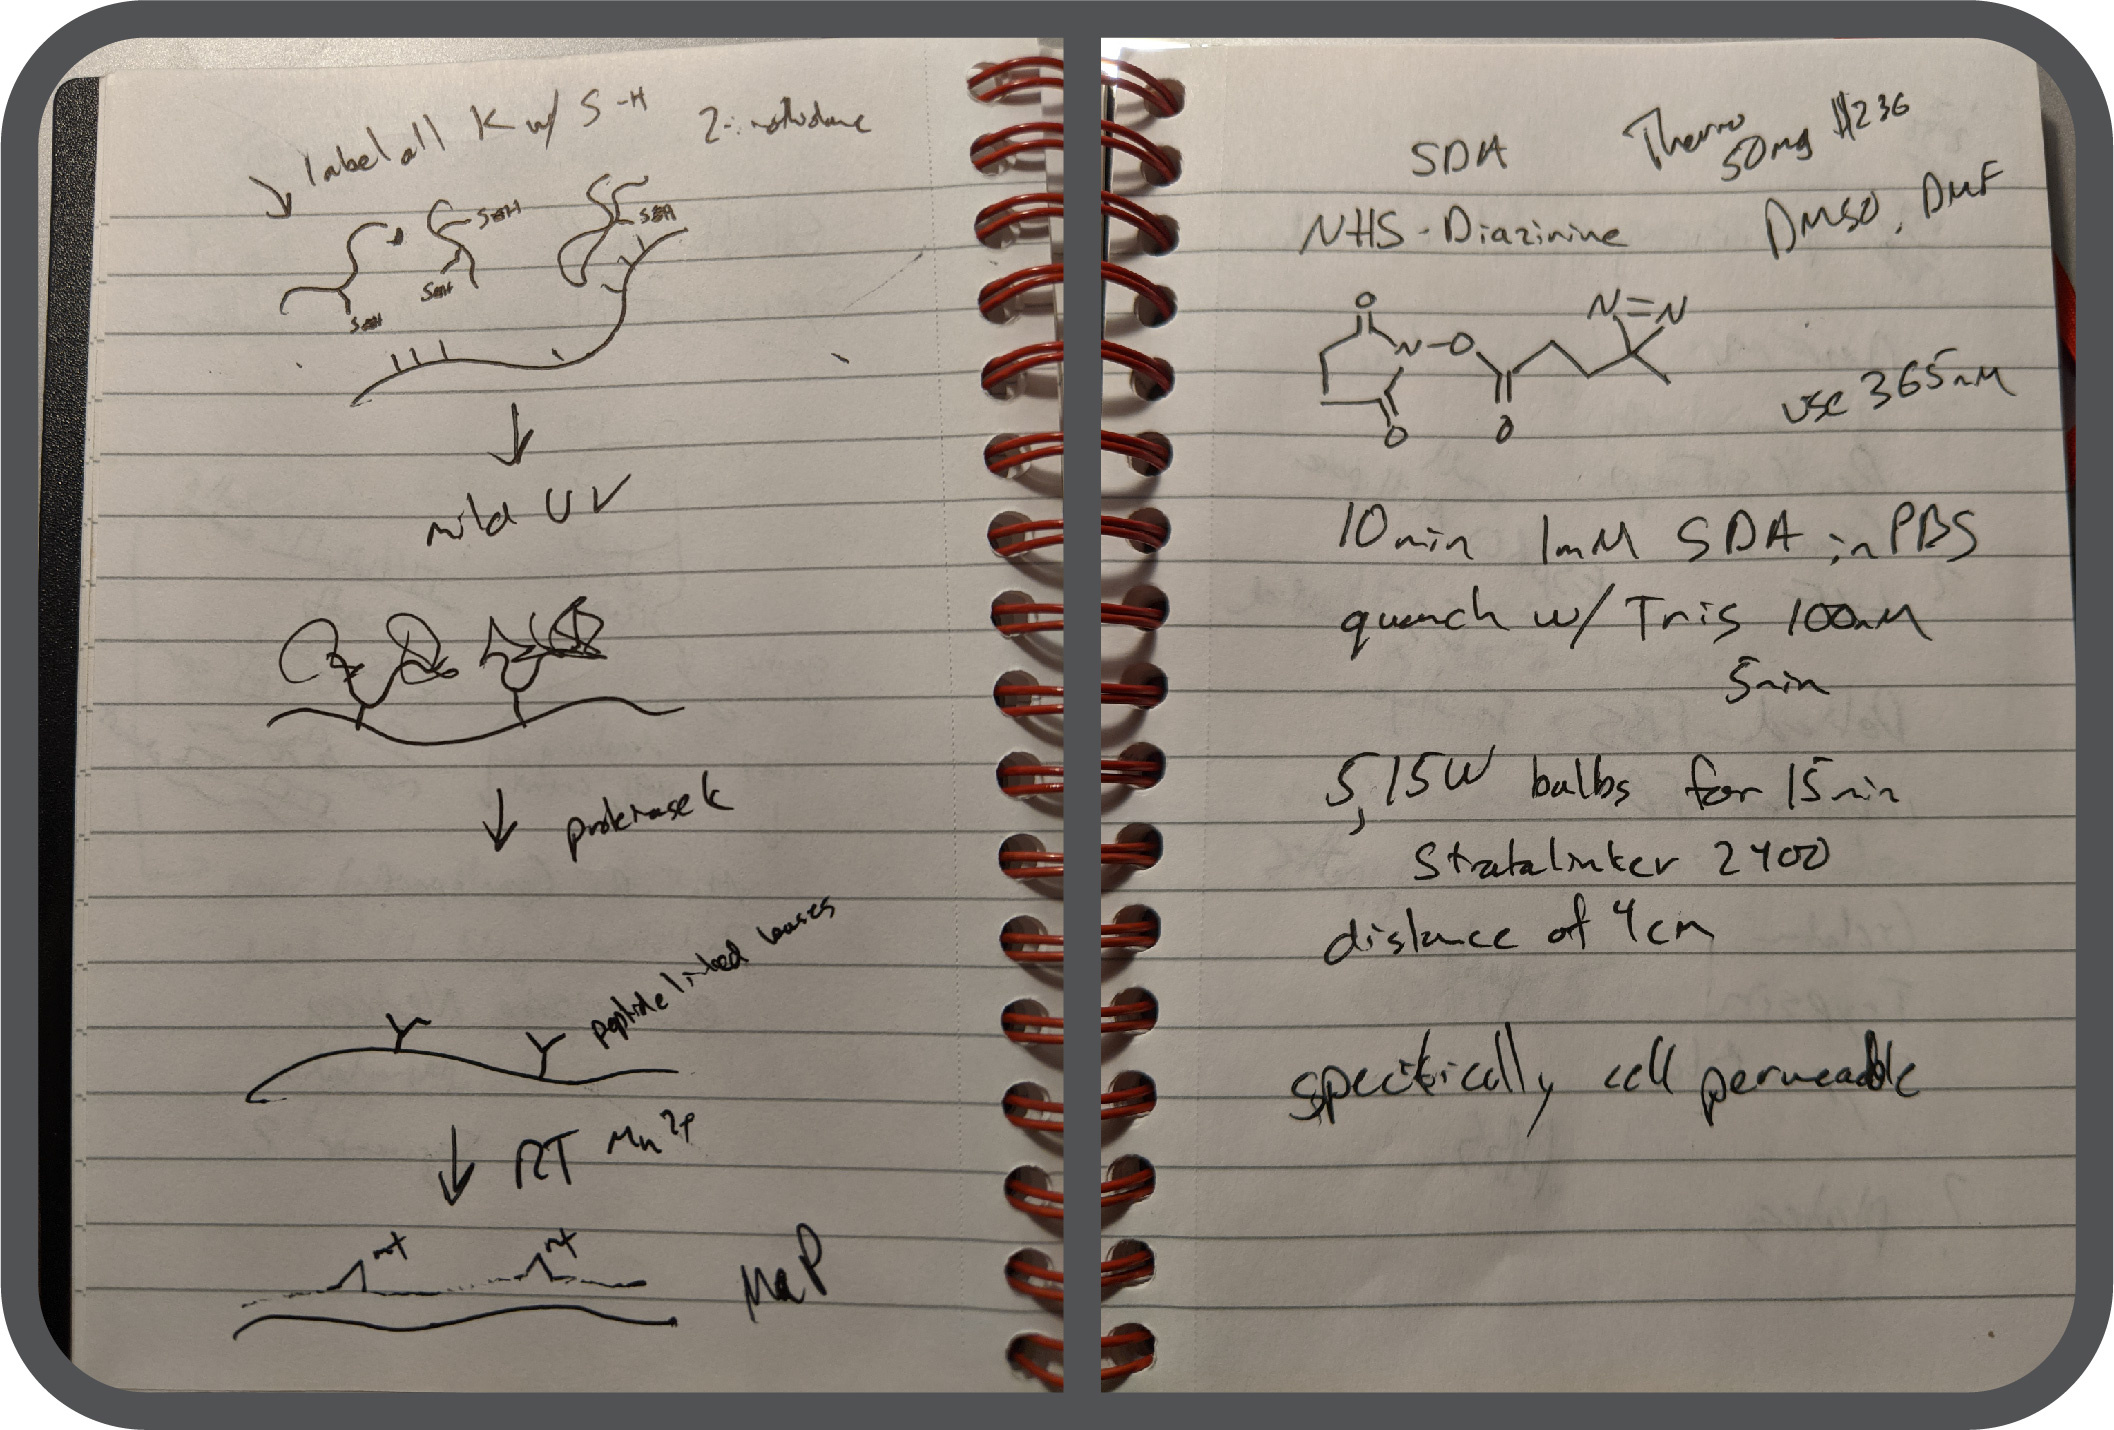 label all K w/ S-H
S-H
S-H
S-H
S-H
mild UV
proteinase k
peptide linked bases
RT Mn2+
mt
mt
MaP
SDA
Thermo
50mg $236
NHS-Diazirine
DMSO, DMF
O
N=N
N-O
O
O
use 365nM
10min 1mM SDA in PBS
quench w/ Tris 100mM
5min
5, 15W bulbs for 15min
Stratalinker 2400
distance of 4cm
specifically cell permeable